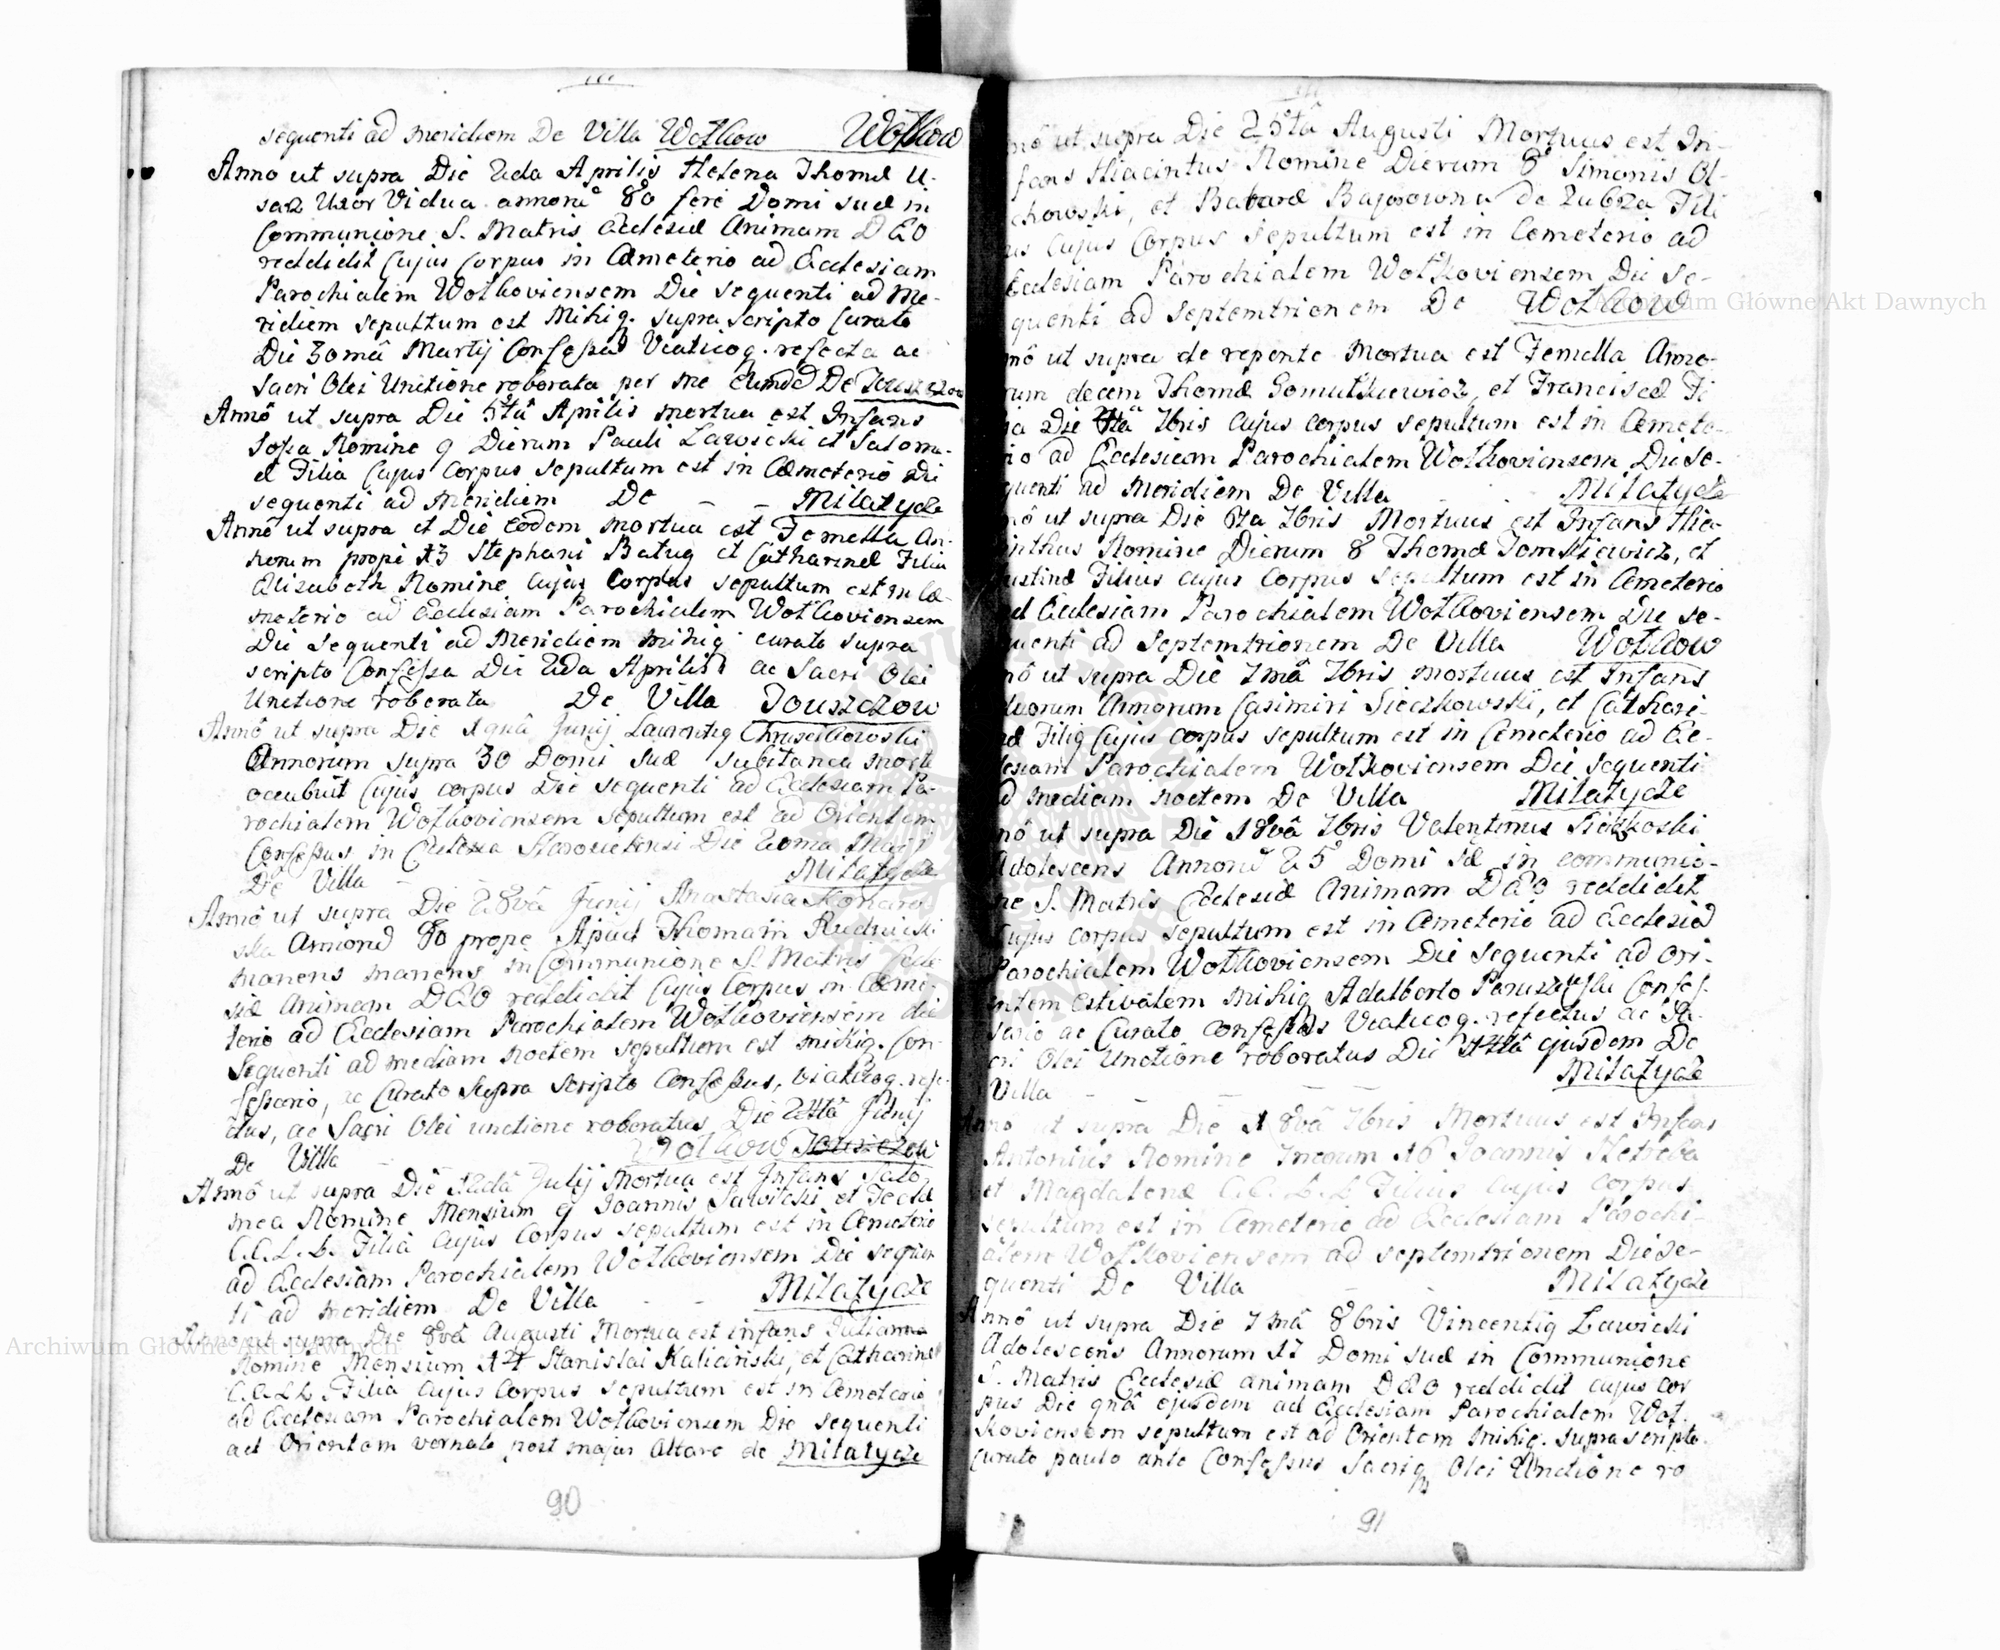 sequenti ad meridiem De Villa Wołkow Wołkow
Anno ut supra Die 2da Aprilis Helena Thomæ U-
saz Uxor Vidua annorũ 80 fere Domi suæ in
Communione S. Matris Ecclesiæ Animam DEO
reddidit Cujus Corpus in Cæmeterio ad Ecclesiam
Parochialem Wołkoviensem Die sequenti ad Me-
ridiem sepultum est Mihiq. supra scripto Curato
Die 30mâ Martij Confessa Viaticoq. refecta ac
Sacri Olei Unctione roborata per me eumdẽ De Touszczow
Annô ut supra Die 5tâ Aprilis mortua est Infans
Sofia Nomine 9 Dierum Pauli Lawicki et Salome-
æ Filia Cujus Corpus sepultum est in Cæmeterio Di
sequenti ad Meridiem De Milatycze
Annô ut supra et Die eodem mortua est Femella An-
norum prope 13 Stephani Batug et Catharinæ Filia
Elisabeth Nomine cujus Corpus sepultum est in Cæ-
meterio ad Ecclesiam Parochialem Wołkoviensem
Die sequenti ad Meridiem mihiq curato supra
scripto Confessa Die 2da Aprilis ac Sacri Olei
Unctione roborata De Villa Touszczow
Annô ut supra Die Junij Laurentig Chruscikowski
Annorum supra 30 Domi suæ subitanea morte
occubuit Cujus corpus Die sequenti ad Ecclesiam Pa-
rochialem Wołkoviensem sepultum est ad Orientem
Confessus in Die Maij
De Villa Milatycze
Annô ut supra Die 28vâ Junij Anastasia
Annorũ 80 prope Apud Thomam Rudnicki
manens manens in Communione S. Matris Eccle
siæ Animam DEO reddidit Cujus Corpus in Cæme-
terio ad Ecclesiam Parochialem Wołkoviensem die
Sequenti ad mediam noctem sepultum est mihiq. Con-
fessario, ac Curato Supra scripto Confessus, viaticoq. refe-
ctus, ac Sacri Olei unctione roboratus Die Junij
De Villa Wołkow Touszczow
Annô ut supra Die Julij Mortua est Infans Salo-
mea Nomine Mensium 9 Joannis Sawicki et Teclæ
C.C.L.L. Filia cujus Corpus sepultum est in Cemeterio
ad Ecclesiam Parochialem Wołkoviensem Die sequen
ti ad meridiem De Villa Milatycze
Anno ut supra Die 8vâ Augusti Mortua est infans Julianna
Nomine Mensium 14 Stanislai Kaliciński, et Catharinæ
C.C.L.L. Filia cujus Corpus sepultum est in Cemeterio
ad Ecclesiam Parochialem Wołkoviensem Die sequenti
ad Orientem vernale post majus Altare de Milatycze
90
nô ut supra Die 25tâ Augusti Mortuus est In-
fans Hiacintus Nomine Dierum 8 Simonis Ol-
chowski, et Barbaræ Bajorowna de Zubrza Fili
us Cujus Corpus sepultum est in Cemeterio ad
Ecclesiam Parochialem Wołkoviensem Die Se-
quenti ad septemtrionem De Wołkow
nô ut supra de repente Mortua est Femella Anno-
rum decem Thomæ Gomułkiewicz, et Franciscæ Fi
ia Die 7bris cujus corpus sepultum est in Cemete-
rio ad Ecclesiam Parochialem Wołkoviensem Die se-
quenti ad Meridiem De Villa Milatycze
nô ut supra Die 6ta 7bris Mortuus est Infans Hia-
inthus Nomine Dierum 8 Thomæ Tomkiewicz, et
ustinæ Filius cujus Corpus sepultum est in Cemeterio
ad Ecclesiam Parochialem Wołkoviensem Die se-
quenti ad Septemtrionem De Villa Wołkow
nô ut supra Die 7mâ 7bris mortuus est Infans
duorum Annorum Casimiri Sieczkowski, et Cathari-
næ Filig Cujus corpus sepultum est in Cemeterio ad Ec-
lesiam Parochialem Wołkoviensem Die sequenti
ad mediam noctem De Villa Milatycze
nô ut supra Die 18vâ 7bris Valentinus
Adolescens Annorũ 25 Domi sæ in communio-
ne S. Matris Ecclesiæ Animam DEO reddidit
Cujus corpus sepultum est in Cemeterio ad Ecclesiã
Parochialem Wołkoviensem Die sequenti ad Ori-
entem estivalem mihiq Adalberto Confes-
sario ac Curato confessus Viaticoq. refectus ac Sa-
cri Olei Unctione roboratus Die ejusdem De
Villa Milatycze
Annô ut supra Die 18vâ 7bris Mortuus est Infans
Antonius Nomine 16 Joannis Netreba
et Magdalenæ C.C.L.L Filius cujus Corpus
sepultum est in Cemeterio ad Ecclesiam Parochi-
alem Wołkoviensem ad septemtrionem Die se-
quenti De Villa Milatycze
Annô ut supra Die 7mâ 8bris Vincentig Lawicki
Adolescens Annorum 17 Domi suæ in Communione
S. Matris Ecclesiæ animam DEO reddidit cujus cor
pus Die 9nâ ejusdem ad Ecclesiam Parochialem Woł-
koviensem sepultum est ad Orientem mihiq. supra scripto
curato paulo ante Confessus Sacriq Olei Unctione ro
91
Archiwum Główne Akt Dawnych
Archiwum Główne Akt Dawnych